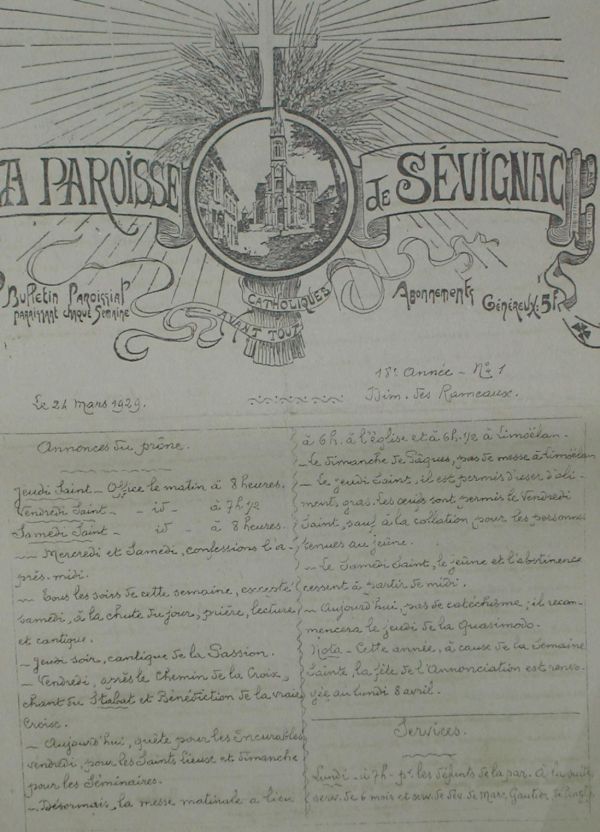 A PAROISSE de SÉVIGNAC
Bulletin Paroissial
paraissant chaque Semaine
CATHOLIQUES
AVANT TOUT
Abonnements
Généreux: 5 Fr
Le 24 Mars 1929.
18e Année - No 1
Dim. des Rameaux.
Annonces du prône.
Jeudi Saint - Office le matin à 8 heures.
Vendredi Saint - id - à 7h 1/2
Samedi Saint - id - à 8 heures.
- Mercredi et Samedi, confessions l'a-
près-midi.
- Tous les soirs de cette semaine, excepté
samedi, à la chute du jour, prière, lecture
et cantique.
- Jeudi soir, cantique de la Passion.
- Vendredi, après le Chemin de la Croix,
chant du Stabat et Bénédiction de la vraie
Croix.
- Aujourd'hui, quête pour les Incurables
vendredi, pour les Saints lieux et dimanche
pour les Séminaires.
- Désormais, la messe matinale a lieu
à 6h. à l'église et à 6h. 1/2 à Limoëlan.
- Le dimanche de Pâques, pas de messe à Limoëlan
- Le Jeudi Saint, il est permis d'user d'ali-
ments gras. Les œufs sont permis le Vendredi
Saint, sauf à la collation pour les personnes
tenues au jeûne.
- Le Samedi Saint, le jeûne et l'abstinence
cessent à partir de midi.
- Aujourd'hui, pas de catéchisme; il recom-
mencera le jeudi de la Quasimodo.
Nota - Cette année, à cause de la Semaine
Sainte, la fête de l'Annonciation est renvo-
yée au lundi 8 avril.
Services.
Lundi - à 7h - pr. les défunts de la par. À la suite
serv. de 6 mois et serv. de Marc, Gautier